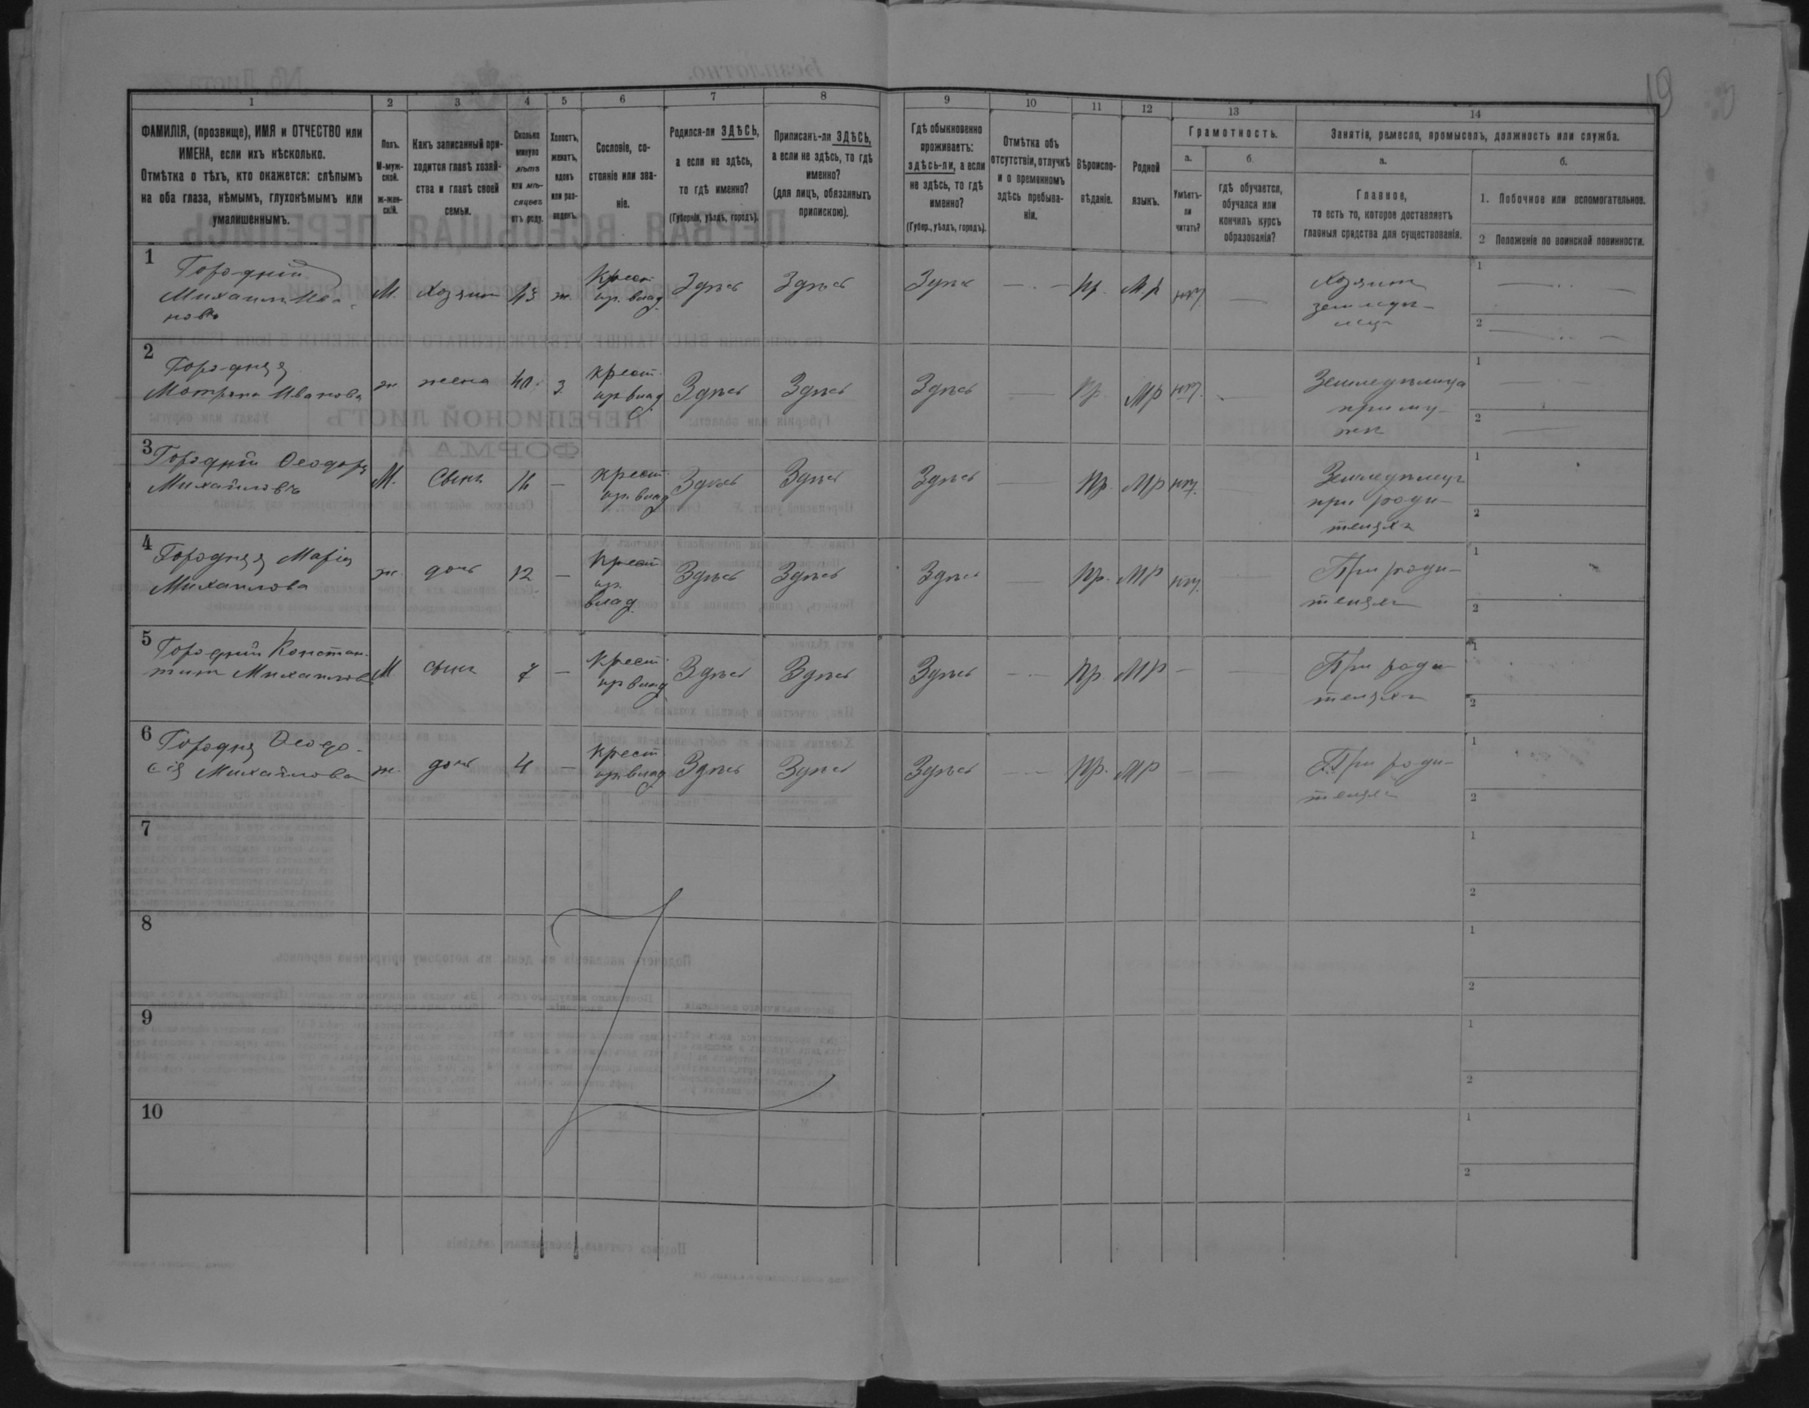 19
1 2 3 4 5 6 7 8 9 10 11 12 13 14
ФАМИЛІЯ, (прозвище), ИМЯ и ОТЧЕСТВО или
ИМЕНА, если ихъ нѣсколько.
Отмѣтка о тѣхъ, кто окажется: слѣпымъ
на оба глаза, нѣмымъ, глухонѣмымъ или
умалишеннымъ.
Полъ.
М-муж-
ской.
ж-жен-
скій.
Какъ записанный при-
ходится главѣ хозяй-
ства и главѣ своей
семьи.
Сколько
минуло
лѣтъ
или мѣ-
сяцевъ
отъ роду.
Холостъ,
женатъ,
вдовъ
или раз-
веденъ.
Сословіе, со-
стояніе или зва-
ніе.
Родился-ли ЗДѢСЬ,
а если не здѣсь,
то гдѣ именно?
(Губернія, уѣздъ, городъ).
Приписанъ-ли ЗДѢСЬ,
а если не здѣсь, то гдѣ
именно?
(для лицъ, обязанныхъ
припискою).
Гдѣ обыкновенно
проживаетъ:
здѣсь-ли, а если
не здѣсь, то гдѣ
именно?
(Губер., уѣздъ, городъ).
Отмѣтка объ
отсутствіи, отлучкѣ
и о временномъ
здѣсь пребыва-
ніи.
Вѣроиспо-
вѣданіе.
Родной
языкъ.
Грамотность.
а.
Умѣетъ-
ли
читать?
б.
гдѣ обучается,
обучался или
кончилъ курсъ
образованія?
Занятія, ремесло, промыселъ, должность или служба.
а.
Главное,
то есть то, которое доставляетъ
главныя средства для существованія.
б.
1. Побочное или вспомогательное.
2 Положеніе по воинской повинности.
1
Городній
Михаилъ Ива-
новъ
М. хозяинъ 43 ж. Крест. Здѣсь Здѣсь Здѣсь — Пр. Мр нѣт —
Хозяинъ
земледѣ-
лец
1
2
2
Городняя
Матрена Иванова
ж жена 40 з. крест. Здѣсь Здѣсь Здѣсь — Пр. Мр нѣт. —
Земледѣлица
при му-
жѣ
1
2
3
Городній Ѳеодоръ
Михайловъ
М. Сынъ 16 — крест. Здѣсь Здѣсь Здѣсь — Пр. Мр нѣт.
Земледѣлецъ
при роди-
теляхъ
1
2
4
Городняя Марія
Михаилова
ж. дочь 12 — Крест.
влад.
Здѣсь Здѣсь Здѣсь — Пр. Мр нѣт.
При роди-
теляхъ
1
2
5
Городній Констан-
тинъ Михаиловъ
М сынъ 7 — Крест. Здѣсь Здѣсь Здѣсь — Пр. Мр — —
При роди-
теляхъ
1
2
6
Городня Ѳеодо-
сія Михайлова
ж. дочь 4 — Крест. Здѣсь Здѣсь Здѣсь — Пр. Мр — —
При роди-
теляхъ
1
2
7
1
2
8
1
2
9
1
2
10
1
2